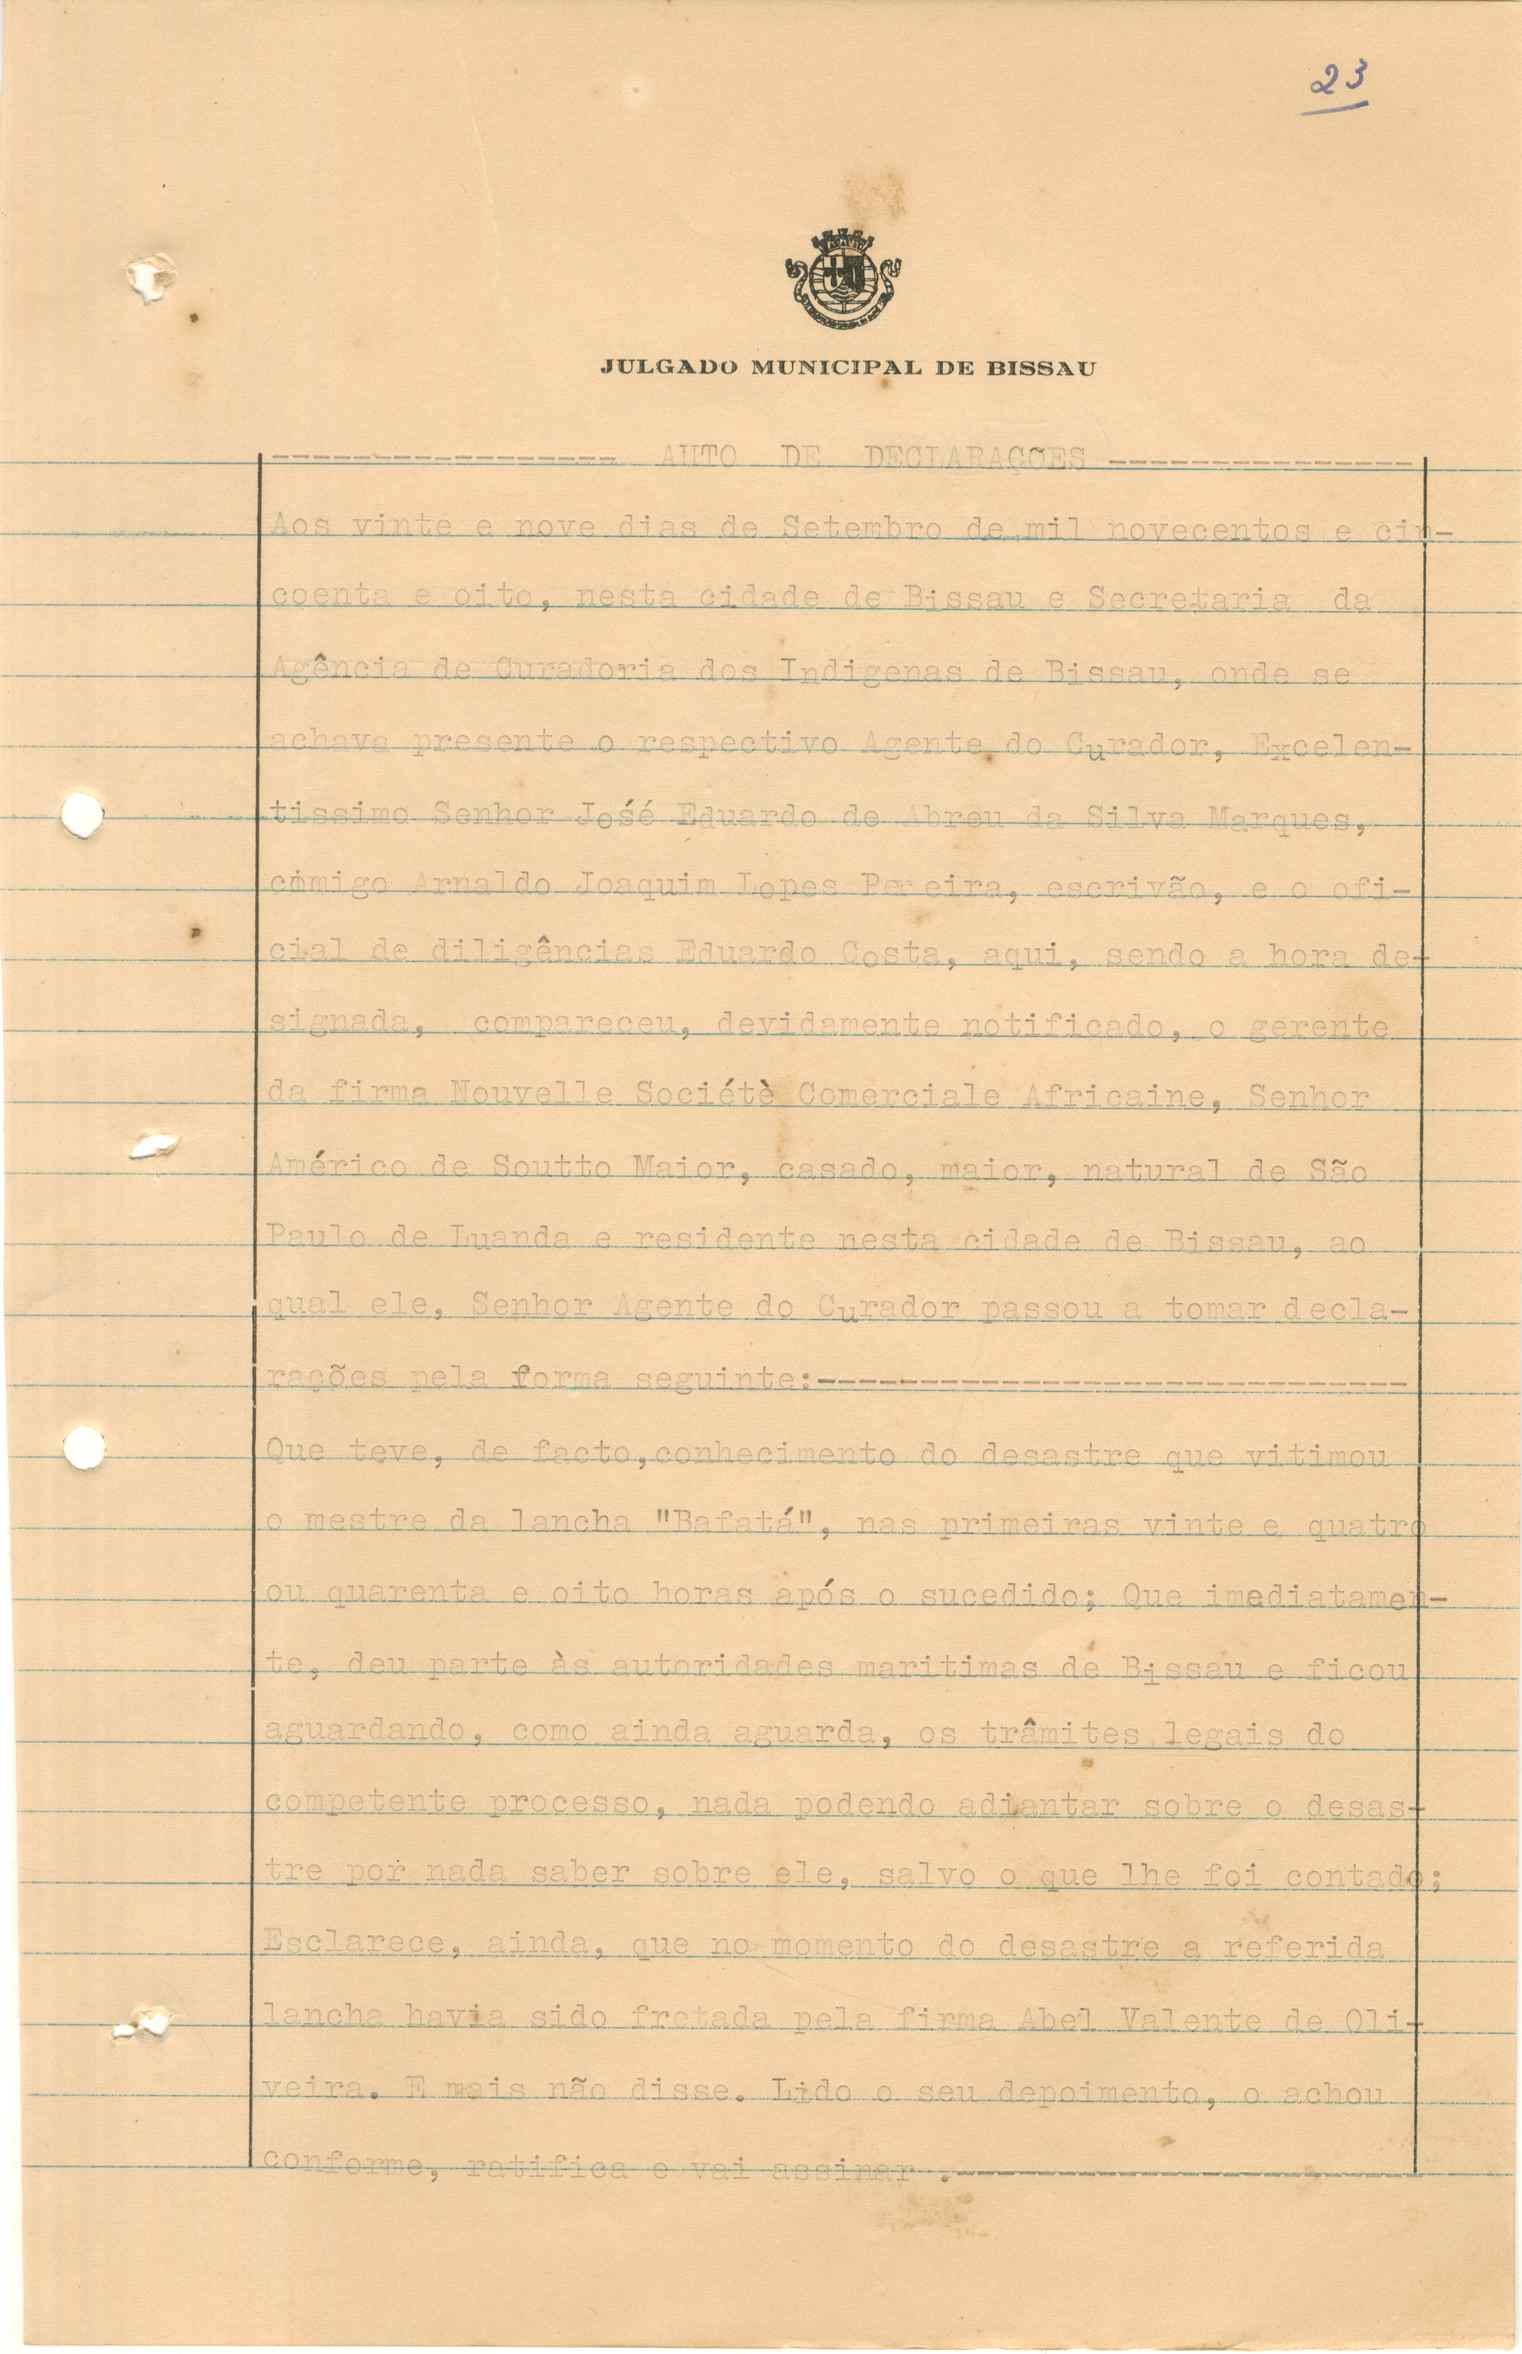 23
JULGADO MUNICIPAL DE BISSAU
----------------- AUTO DE DECLARAÇÕES ---------------
Aos vinte e nove dias de Setembro de mil novecentos e cin-
coenta e oito, nesta cidade de Bissau e Secretaria da
Agência de Curadoria dos Indigenas de Bissau, onde se
achava presente o respectivo Agente do Curador, Excelen-
tissimo Senhor José Eduardo de Abreu da Silva Marques,
comigo Arnaldo Joaquim Lopes Pereira, escrivão, e o ofi-
cial de diligências Eduardo Costa, aqui, sendo a hora de-
signada, compareceu, devidamente notificado, o gerente
da firma Nouvelle Sociétè Comerciale Africaine, Senhor
Américo de Soutto Maior, casado, maior, natural de São
Paulo de Luanda e residente nesta cidade de Bissau, ao
qual ele, Senhor Agente do Curador passou a tomar decla-
rações pela forma seguinte:-----------------------------
Que teve, de facto,conhecimento do desastre que vitimou
o mestre da lancha "Bafatá", nas primeiras vinte e quatro
ou quarenta e oito horas após o sucedido; Que imediatamen-
te, deu parte às autoridades maritimas de Bissau e ficou
aguardando, como ainda aguarda, os trâmites legais do
competente processo, nada podendo adiantar sobre o desas-
tre por nada saber sobre ele, salvo o que lhe foi contado;
Esclarece, ainda, que no momento do desastre a referida
lancha havia sido fretada pela firma Abel Valente de Oli-
veira. E mais não disse. Lido o seu depoimento, o achou
conforme, ratifica e vai assinar .-----------------------